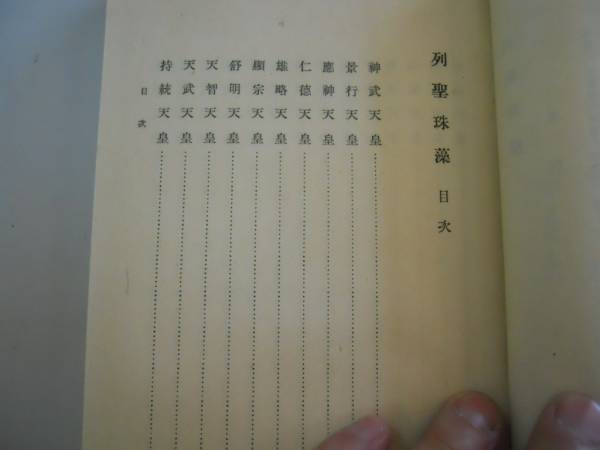 列聖珠藻 目次
神武天皇
景行天皇
應神天皇
仁德天皇
雄略天皇
顯宗天皇
舒明天皇
天智天皇
天武天皇
持統天皇
目次